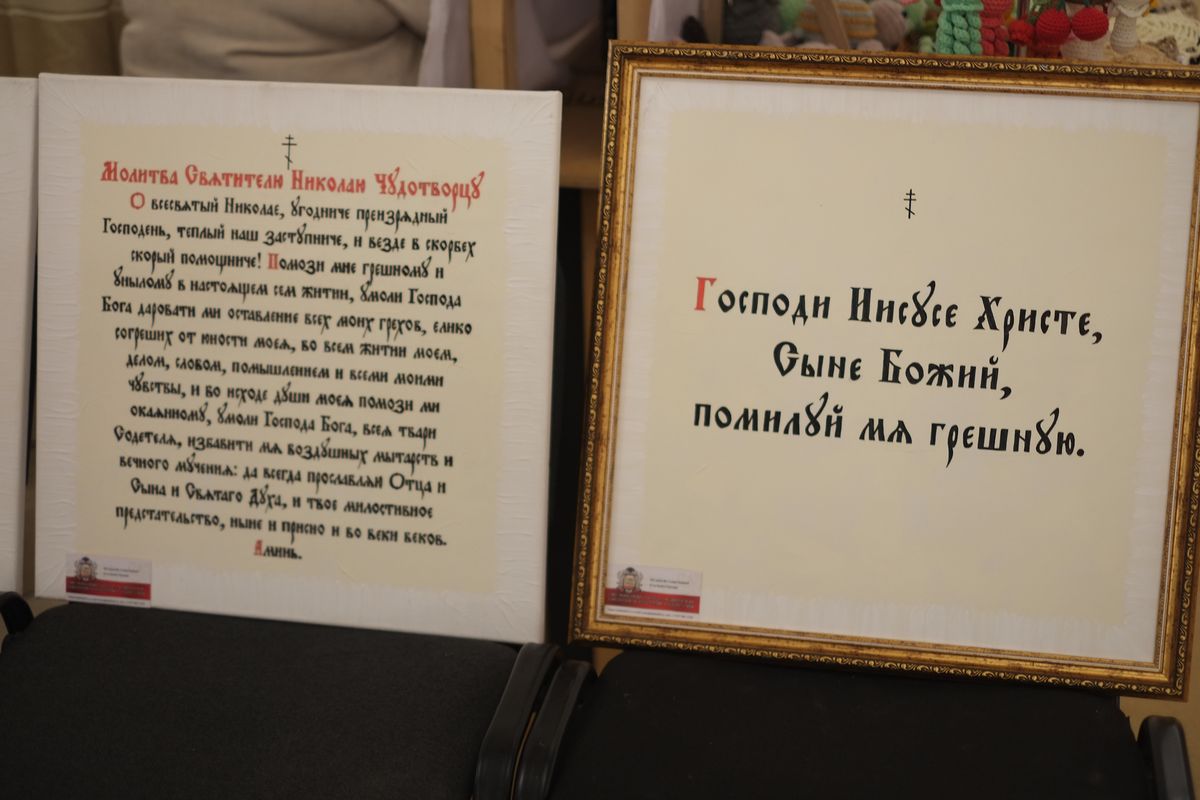 Молитва Святителю Николаю Чудотворцу
О всесвятый Николае, угодниче преизрядный
Господень, теплый наш заступниче, и везде в скорбех
скорый помощниче! Помози мне грешному и
унылому в настоящем сем житии, умоли Господа
Бога даровати ми оставление всех моих грехов, елико
согреших от юности моея, во всем житии моем,
делом, словом, помышлением и всеми моими
чувствы, и во исходе души моея помози ми
окаянному, умоли Господа Бога, всея твари
Содетеля, избавити мя воздушных мытарств и
вечного мучения: да всегда прославляи Отца и
Сына и Святаго Духа, и твое милостивное
предстательство, ныне и присно и во веки веков.
Аминь.
Господи Иисусе Христе,
Сыне Божий,
помилуй мя грешную.